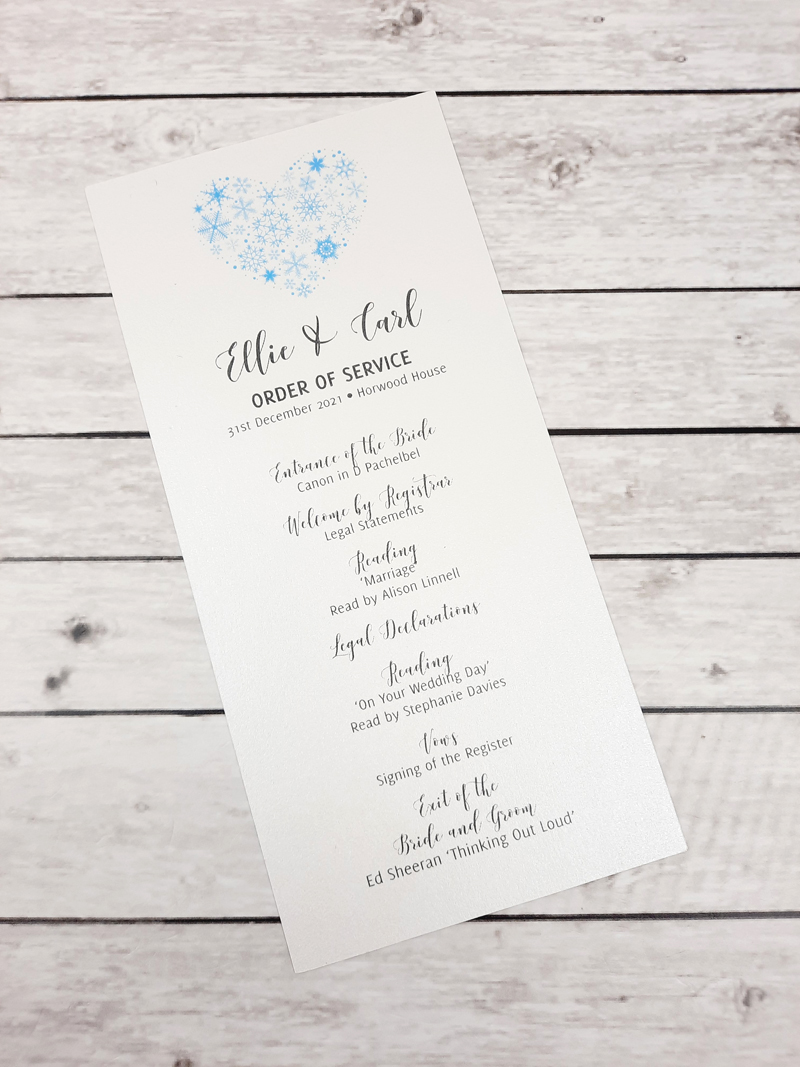 Ellie & Carl
ORDER OF SERVICE
31st December 2021 • Horwood House
Entrance of the Bride
Canon in D Pachelbel
Welcome by Registrar
Legal Statements
Reading
'Marriage'
Read by Alison Linnell
Legal Declarations
Reading
'On Your Wedding Day'
Read by Stephanie Davies
Vows
Signing of the Register
Exit of the
Bride and Groom
Ed Sheeran 'Thinking Out Loud'